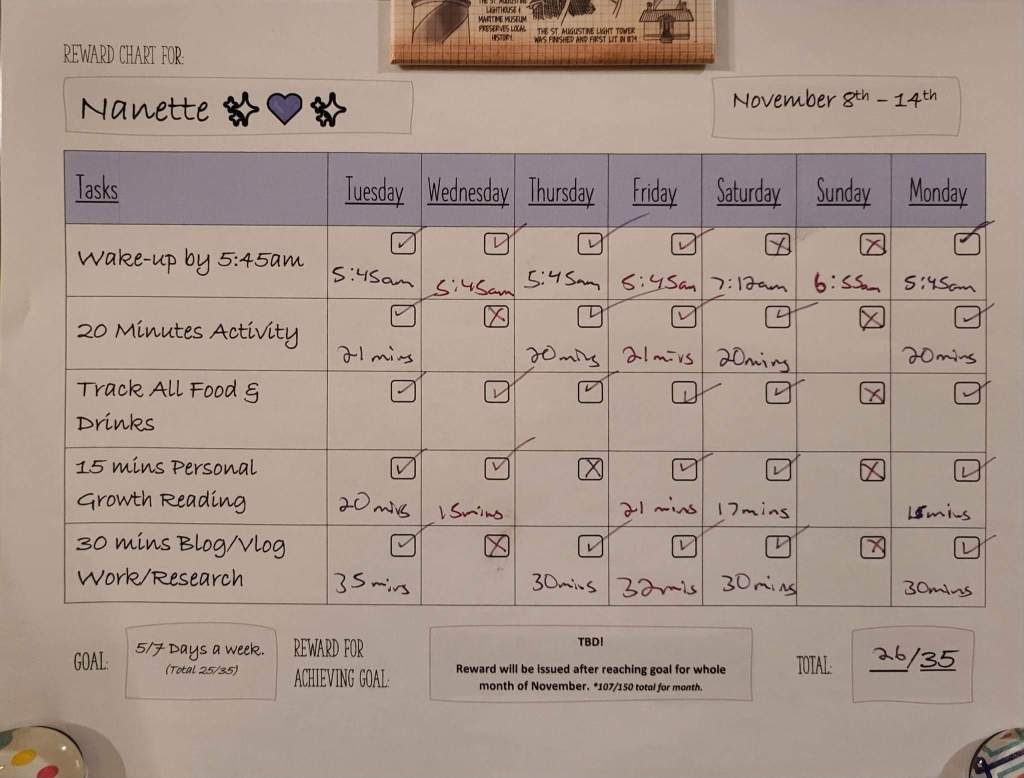 THE ST. AUGUSTINE
LIGHTHOUSE &
MARITIME MUSEUM
PRESERVES LOCAL
HISTORY.
THE ST. AUGUSTINE LIGHT TOWER
WAS FINISHED AND FIRST LIT IN 1874
REWARD CHART FOR:
Nanette
November 8th – 14th
Tasks Tuesday Wednesday Thursday Friday Saturday Sunday Monday
Wake-up by 5:45am
5:45am 5:45am 5:45am 5:45am 7:12am 6:55am 5:45am
20 Minutes Activity
21 mins 20 mins 21 mins 20 mins 20 mins
Track All Food &
Drinks
15 mins Personal
Growth Reading
20 mins 15 mins 21 mins 17 mins 15 mins
30 mins Blog/Vlog
Work/Research
35 mins 30 mins 32 mins 30 mins 30 mins
GOAL:
5/7 Days a week.
(Total 25/35)
REWARD FOR
ACHIEVING GOAL:
TBD!
Reward will be issued after reaching goal for whole
month of November. *107/150 total for month.
TOTAL:
26/35